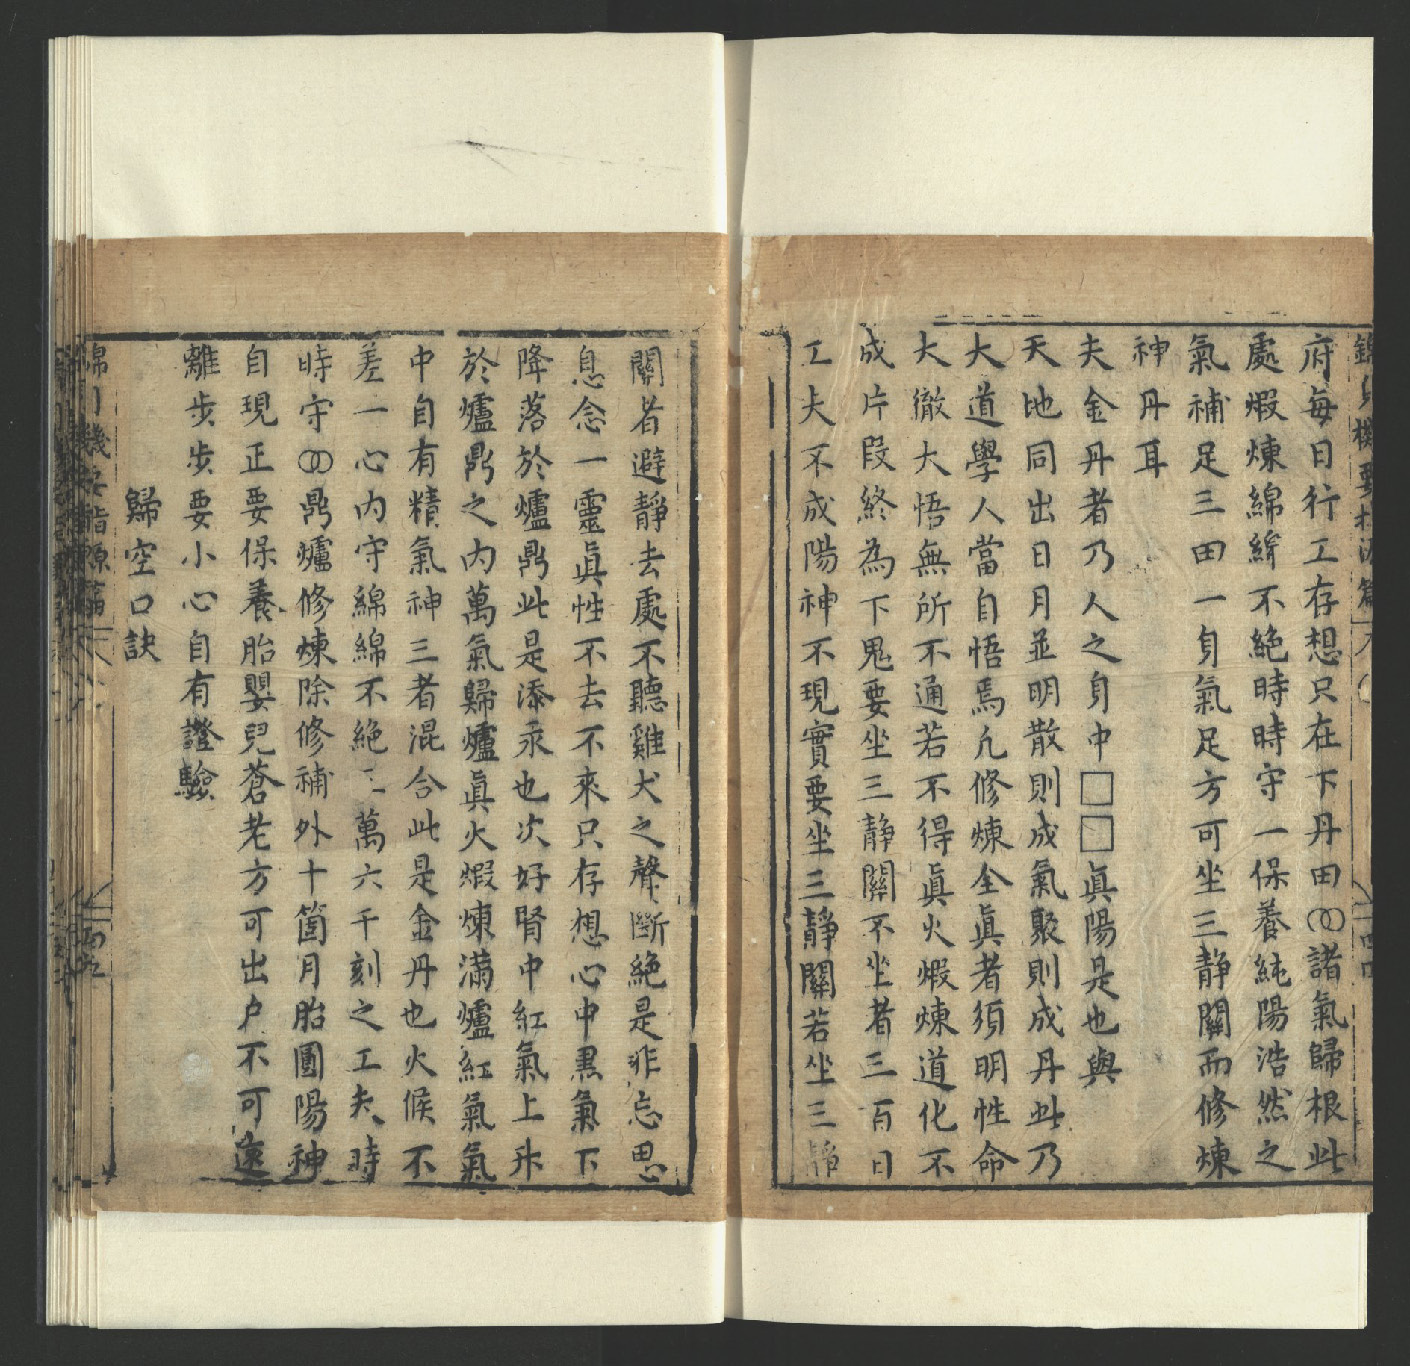 府每日行工存想只在下丹田諸氣歸根此
處煆煉綿綿不絕時時守一保養純陽浩然之
氣補足三田一身氣足方可坐三静關而修煉
神丹耳
夫金丹者乃人之身中□□眞陽是也與
天地同出日月並明散則成氣聚則成丹此乃
大道學人當自悟焉凢修煉全眞者須明性命
大徹大悟無所不通若不得眞火煆煉道化不
成片段終為下鬼要坐三静關不坐者三百日
工夫不成陽神不現實要坐三静關若坐三静
關者避静去處不聽雞犬之聲斷絕是非忘思
息念一靈眞性不去不來只存想心中黒氣下
降落於爐鼎此是添汞也次好腎中紅氣上升
於爐鼎之内萬氣歸爐眞火煆煉滿爐紅氣氣
中自有精氣神三者混合此是金丹也火候不
差一心内守綿綿不絕三萬六千刻之工夫時
時守鼎爐修煉除修補外十箇月胎圓陽神
自現正要保養胎嬰兒蒼老方可出户不可遠
離步步要小心自有證驗
歸空口訣